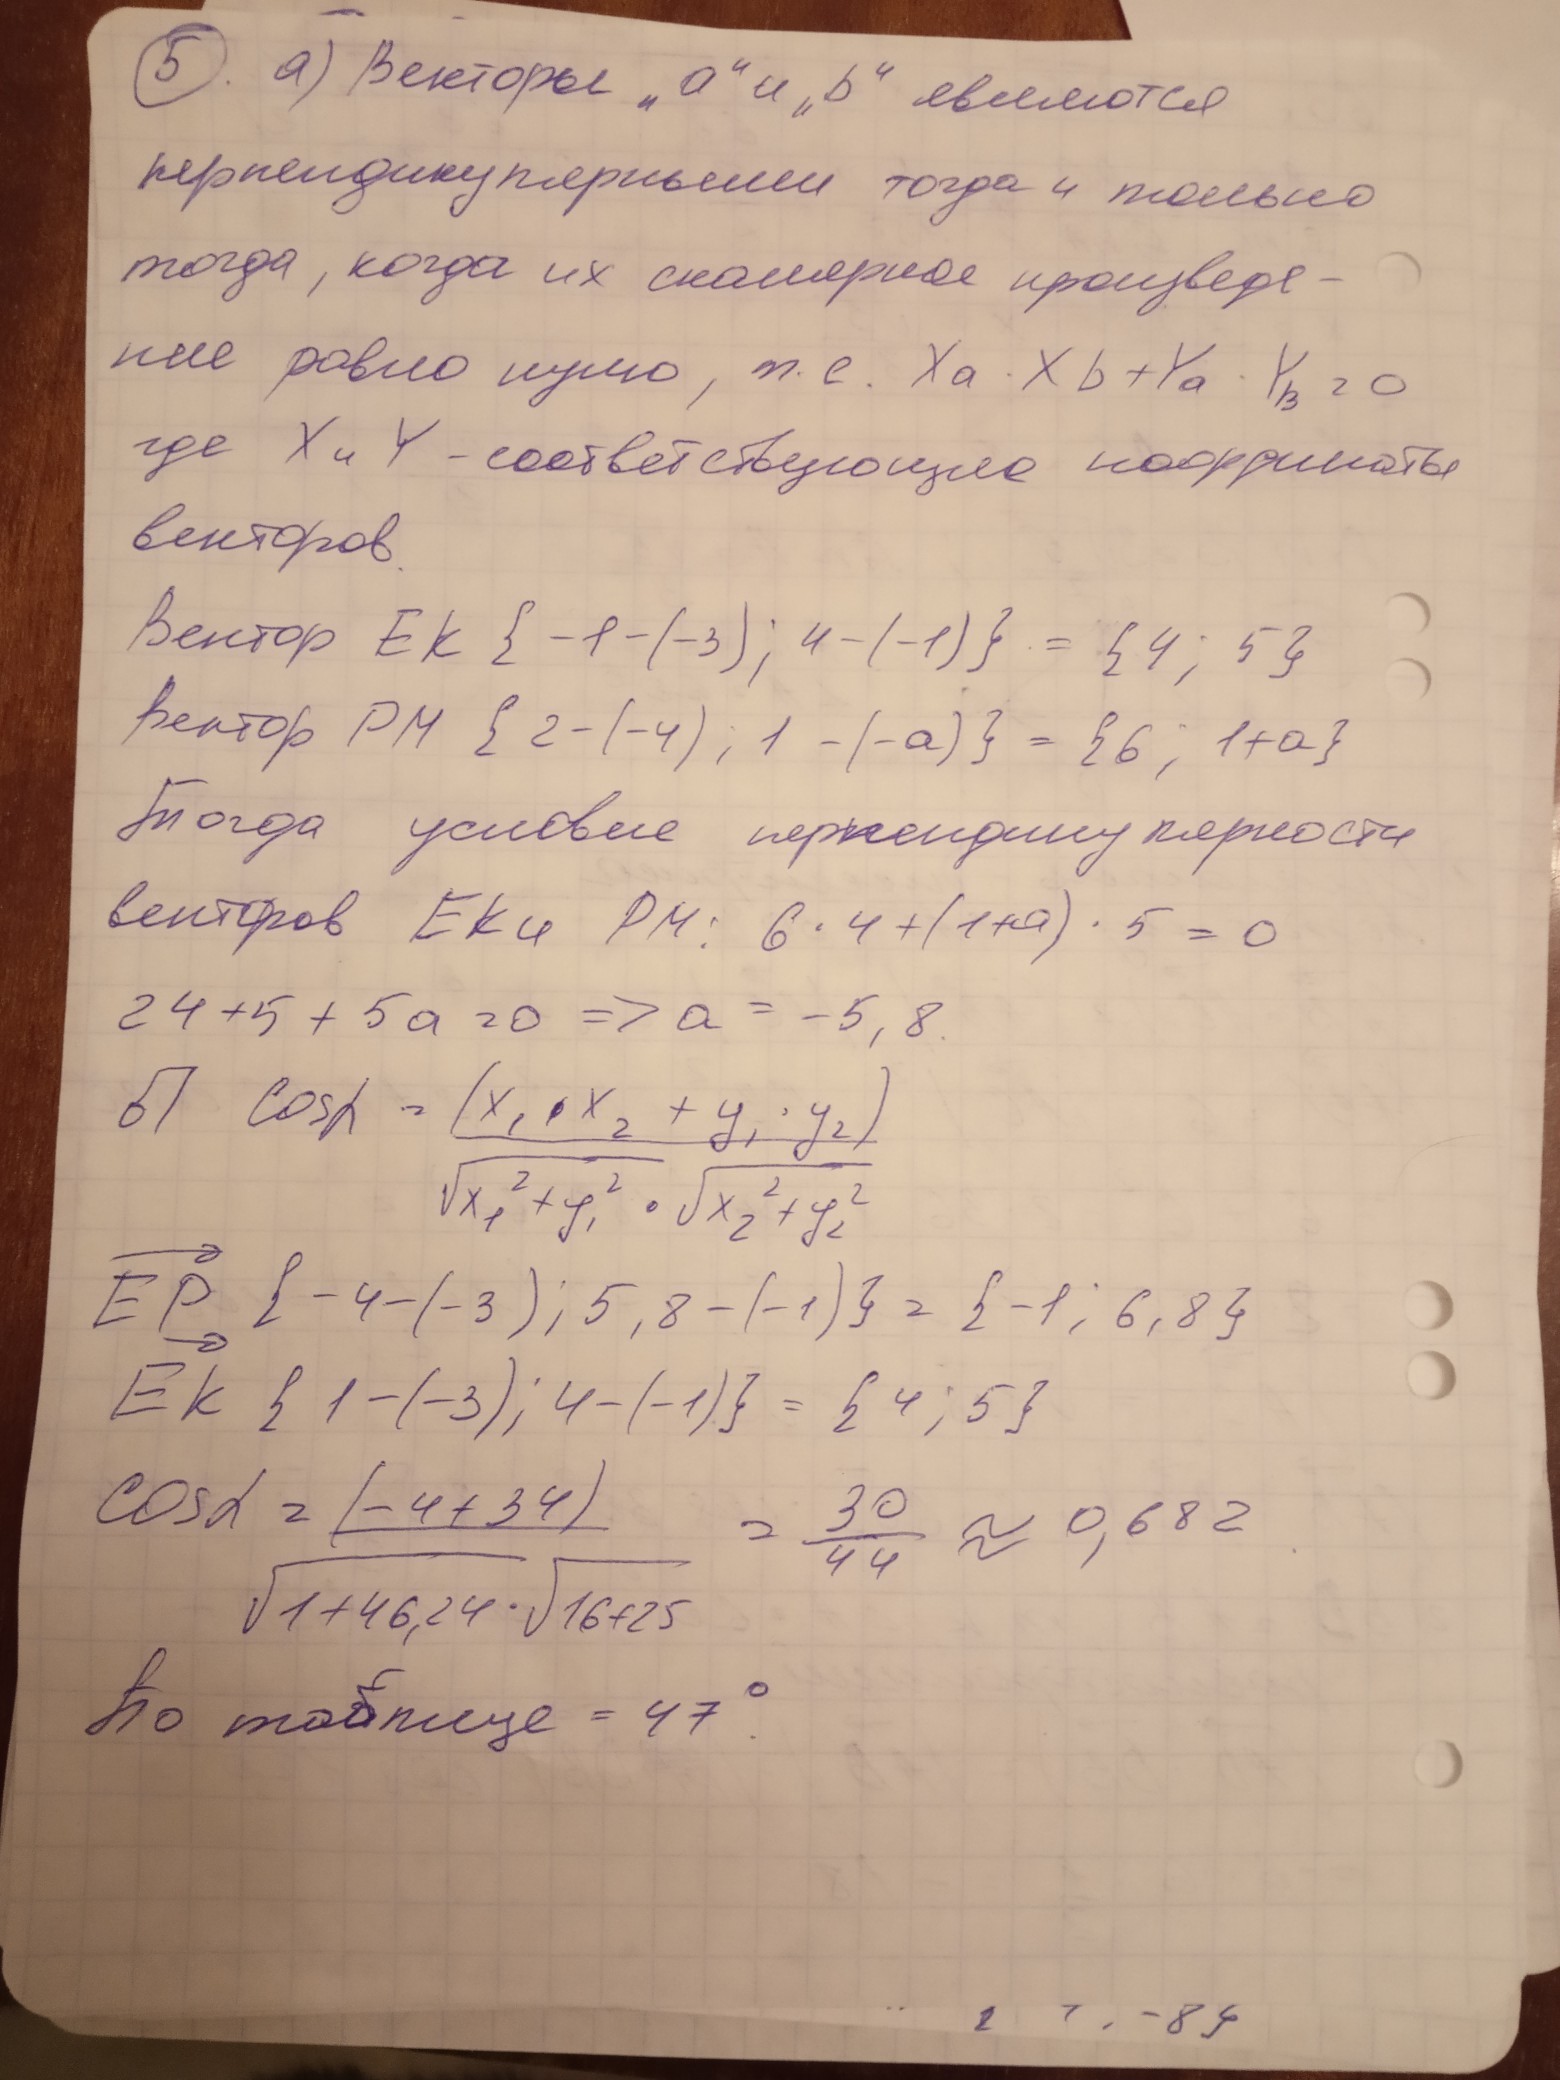 5. а) Векторы „a“ и „b“ являются
перпендикулярными тогда и только
тогда, когда их скалярное произведе-
ние равно нулю, т.е. Xa · Xb + Ya · Yв = 0
где X и Y - соответствующие координаты
векторов.
Вектор EK {-1-(-3); 4-(-1)} = {4; 5}
Вектор PM {2-(-4); 1-(-a)} = {6; 1+a}
Тогда условие перпендикулярности
векторов EK и PM: 6·4+(1+a)·5=0
24+5+5a=0 => a = -5,8.
б) cosα = (x₁·x₂ + y₁·y₂)
√x₁²+y₁² · √x₂²+y₂²
EP {-4-(-3); 5,8-(-1)} = {-1; 6,8}
EK {1-(-3); 4-(-1)} = {4; 5}
cosα = (-4+34) = 30 ≈ 0,682
√1+46,24 · √16+25 44
По таблице = 47°.